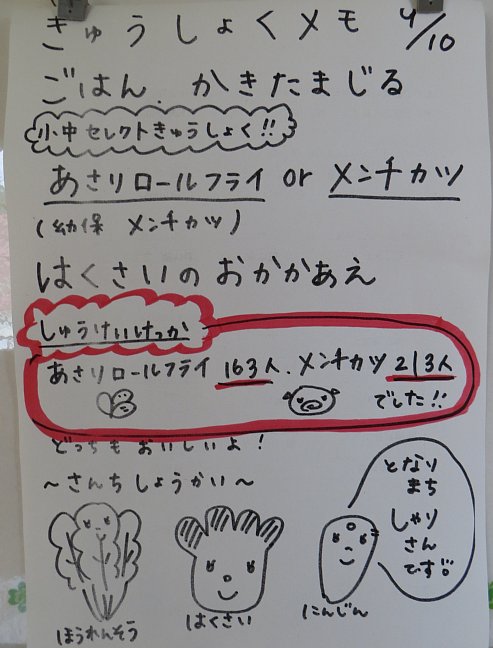 きゅうしょくメモ 4/10
ごはん、かきたまじる
小中セレクトきゅうしょく!!
あさりロールフライ or メンチカツ
(幼保 メンチカツ)
はくさいのおかかあえ
しゅうけいけっか
あさりロールフライ 163人、メンチカツ 213人
でした!!
どっちもおいしいよ!
～さんちしょうかい～
となり
まち
しゃり
さん
です。
ほうれんそう
はくさい
にんじん